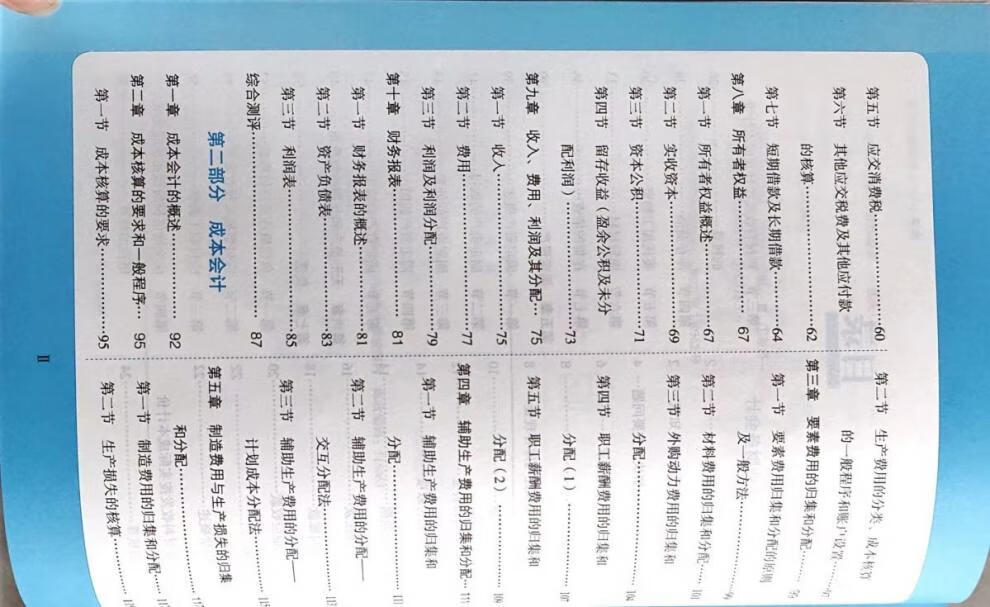 第五节 应交消费税……60
第六节 其他应交税费及其他应付款
的核算……62
第七节 短期借款及长期借款……64
第八章 所有者权益……67
第一节 所有者权益概述……67
第二节 实收资本……69
第三节 资本公积……71
第四节 留存收益（盈余公积及未分
配利润）……73
第九章 收入、费用、利润及其分配…75
第一节 收入……75
第二节 费用……77
第三节 利润及利润分配……79
第十章 财务报表……81
第一节 财务报表的概述……81
第二节 资产负债表……83
第三节 利润表……85
综合测评……87
第二部分 成本会计
第一章 成本会计的概述……92
第二章 成本核算的要求和一般程序…95
第一节 成本核算的要求……95
第二节 生产费用的分类、成本核算
的一般程序和账户设置……
第三章 要素费用的归集和分配……99
第一节 要素费用归集和分配的原则
及一般方法……99
第二节 材料费用的归集和分配……101
第三节 外购动力费用的归集和
分配……104
第四节 职工薪酬费用的归集和
分配（1）……107
第五节 职工薪酬费用的归集和
分配（2）……109
第四章 辅助生产费用的归集和分配…111
第一节 辅助生产费用的归集和
分配……111
第二节 辅助生产费用的分配——
交互分配法……113
第三节 辅助生产费用的分配——
计划成本分配法……115
第五章 制造费用与生产损失的归集
和分配……
第一节 制造费用的归集和分配……
第二节 生产损失的核算……
II